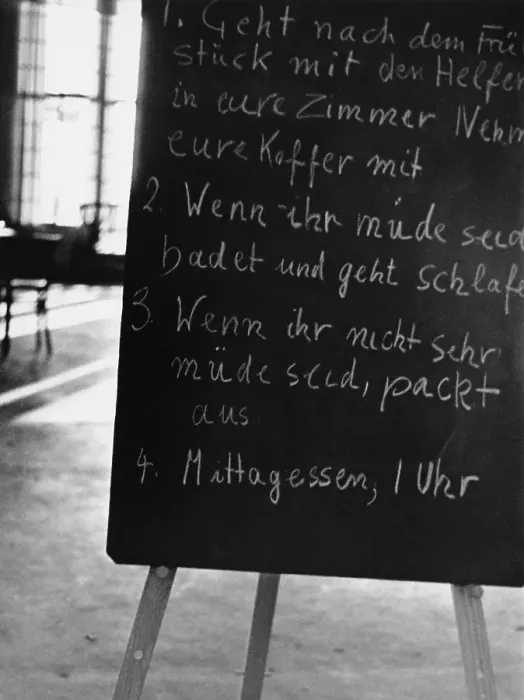 1. Geht nach dem Frü
stück mit den Helfer
in eure Zimmer Nehm
eure Koffer mit
2. Wenn ihr müde seid
badet und geht schlafe
3. Wenn ihr nicht sehr
müde seid, packt
aus
4. Mittagessen, 1 Uhr